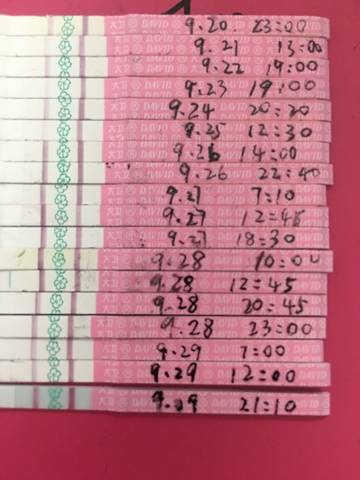 9.20 23:00
9.21 13:00
9.22 19:00
9.23 19:00
9.24 20:20
9.25 12:30
9.26 14:00
9.26 22:40
9.27 7:10
9.27 12:45
9.27 18:30
9.28 10:00
9.28 12:45
9.28 20:45
9.28 23:00
9.29 7:00
9.29 12:00
9.29 21:10